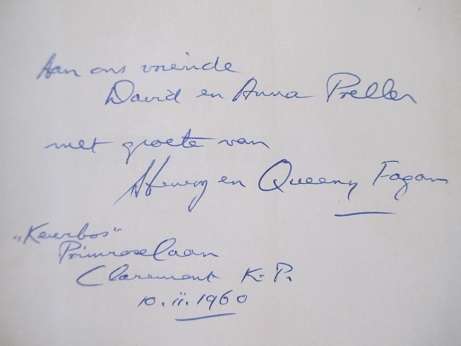 Aan ons vriende
David en Anna Preller
met groete van
Henry en Queeny Fagan
„Keurbos"
Primroselaan
Claremont K.P.
10.ii.1960